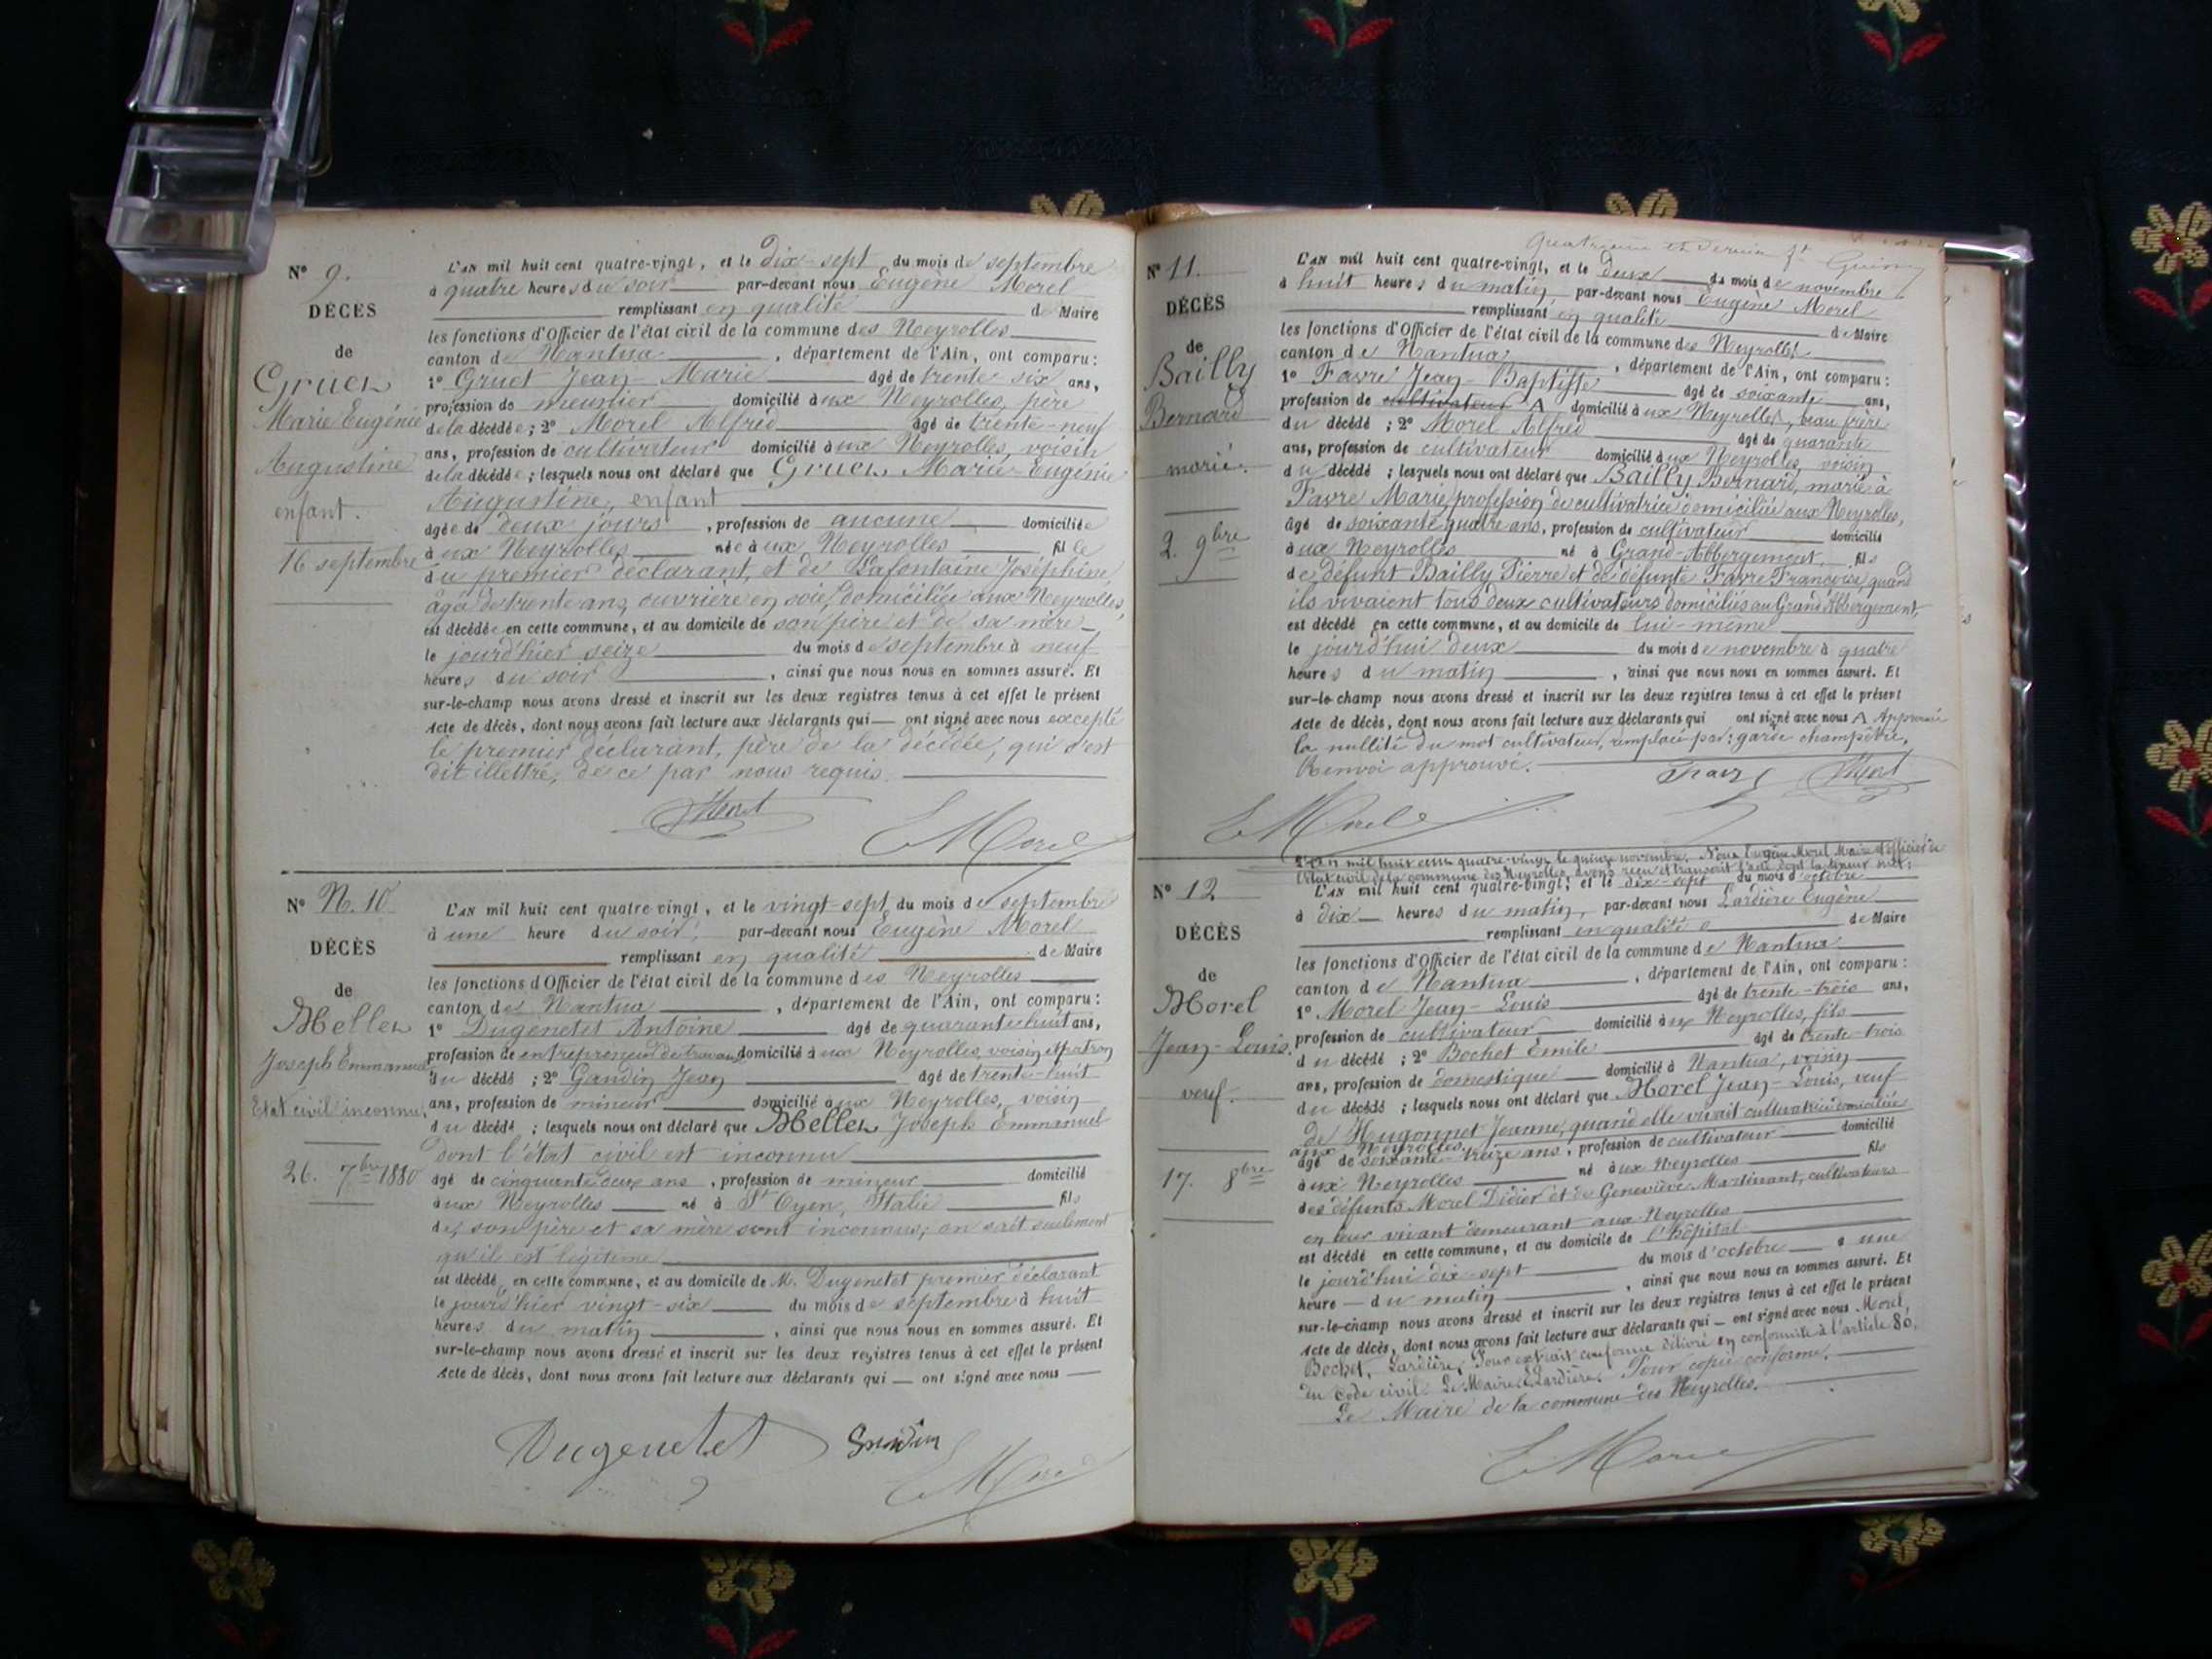 N° 9.
DÉCÈS
de
Gruet
Marie Eugénie
Augustine
enfant.
16 septembre
L'AN mil huit cent quatre-vingt, et le dix-sept du mois de septembre
à quatre heures du soir par-devant nous Eugène Morel
remplissant en qualité de Maire
les fonctions d'Officier de l'état civil de la commune des Neyrolles
canton de Nantua, département de l'Ain, ont comparu :
1° Gruet Jean-Marie âgé de trente six ans,
profession de meunier domicilié aux Neyrolles, père
de la décédée ; 2° Morel Alfred âgé de trente-neuf
ans, profession de cultivateur domicilié aux Neyrolles, voisin
de la décédée ; lesquels nous ont déclaré que Gruet Marie Eugénie
Augustine, enfant
âgée de deux jours, profession de aucune domiciliée
aux Neyrolles née aux Neyrolles fille
du premier déclarant, et de Lafontaine Joséphine,
âgée de trente ans, ouvrière en soie, domiciliée aux Neyrolles,
est décédée en cette commune, et au domicile de son père et de sa mère
le jourd'hier seize du mois de septembre à neuf
heures du soir, ainsi que nous nous en sommes assuré. Et
sur-le-champ nous avons dressé et inscrit sur les deux registres tenus à cet effet le présent
Acte de décès, dont nous avons fait lecture aux déclarants qui — ont signé avec nous excepté
le premier déclarant, père de la décédée, qui s'est
dit illettré, de ce par nous requis.
E Morel
N° N. 10
DÉCÈS
de
Mellet
Joseph Emmanuel
Etat civil inconnu.
26. 7bre 1880
L'AN mil huit cent quatre-vingt, et le vingt-sept du mois de septembre
à une heure du soir, par-devant nous Eugène Morel
remplissant en qualité de Maire
les fonctions d'Officier de l'état civil de la commune des Neyrolles
canton de Nantua, département de l'Ain, ont comparu :
1° Dugenetet Antoine âgé de quarante huit ans,
profession de entrepreneur de travaux domicilié aux Neyrolles, voisin et patron
du décédé ; 2° Gandin Jean âgé de trente-huit
ans, profession de mineur domicilié aux Neyrolles, voisin
du décédé ; lesquels nous ont déclaré que Mellet Joseph Emmanuel
dont l'état civil est inconnu
âgé de cinquante deux ans, profession de mineur domicilié
aux Neyrolles né à St Oyen, Italie fils
de, son père et sa mère sont inconnus; on sait seulement
qu'il est légitime
est décédé en cette commune, et au domicile de M. Dugenetet premier déclarant
le jourd'hier vingt-six du mois de septembre à huit
heures du matin, ainsi que nous nous en sommes assuré. Et
sur-le-champ nous avons dressé et inscrit sur les deux registres tenus à cet effet le présent
Acte de décès, dont nous avons fait lecture aux déclarants qui — ont signé avec nous —
Dugenetet
E Morel
Quatrième et dernier
N° 11.
DÉCÈS
de
Bailly
Bernard
marié.
2. 9bre
L'AN mil huit cent quatre-vingt, et le deux du mois de novembre
à huit heures du matin par-devant nous Eugène Morel
remplissant en qualité de Maire
les fonctions d'Officier de l'état civil de la commune des Neyrolles
canton de Nantua, département de l'Ain, ont comparu :
1° Favre Jean-Baptiste âgé de soixante ans,
profession de cultivateur A domicilié aux Neyrolles, beau frère
du décédé ; 2° Morel Alfred âgé de quarante
ans, profession de cultivateur domicilié aux Neyrolles, voisin
du décédé ; lesquels nous ont déclaré que Bailly Bernard, marié à
Favre Marie, profession de cultivatrice domiciliée aux Neyrolles,
âgé de soixante quatre ans, profession de cultivateur domicilié
aux Neyrolles né à Grand-Abbergement, fils
de défunt Bailly Pierre et de défunte Favre Françoise, quand
ils vivaient tous deux cultivateurs domiciliés au Grand Abbergement,
est décédé en cette commune, et au domicile de lui-même
le jourd'hui deux du mois de novembre à quatre
heures du matin, ainsi que nous nous en sommes assuré. Et
sur-le-champ nous avons dressé et inscrit sur les deux registres tenus à cet effet le présent
Acte de décès, dont nous avons fait lecture aux déclarants qui ont signé avec nous A Approuvé
la nullité du mot cultivateur, remplacé par : garde champêtre,
Renvoi approuvé.
E Morel
L'an mil huit cent quatre-vingt le quinze novembre. Nous Eugène Morel Maire et officier de
l'état civil de la commune des Neyrolles, avons reçu et transcrit l'acte dont la teneur suit :
N° 12
DÉCÈS
de
Morel
Jean-Louis.
veuf.
17. 8bre
L'AN mil huit cent quatre-vingt, et le dix-sept du mois d'octobre
à dix heures du matin, par-devant nous Lardière Eugène
remplissant en qualité de Maire
les fonctions d'Officier de l'état civil de la commune de Nantua
canton de Nantua, département de l'Ain, ont comparu :
1° Morel Jean-Louis âgé de trente-trois ans,
profession de cultivateur domicilié aux Neyrolles, fils
du décédé ; 2° Bochet Emile âgé de trente-trois
ans, profession de domestique domicilié à Nantua, voisin
du décédé ; lesquels nous ont déclaré que Morel Jean-Louis, veuf
de Hugonnet Jeanne, quand elle vivait cultivatrice domiciliée
aux Neyrolles,
âgé de soixante-treize ans, profession de cultivateur domicilié
aux Neyrolles né aux Neyrolles fils
des défunts Morel Didier et de Geneviève Martinant, cultivateurs
en leur vivant demeurant aux Neyrolles
est décédé en cette commune, et au domicile de l'hôpital
le jourd'hui dix-sept du mois d'octobre à une
heure — du matin, ainsi que nous nous en sommes assuré. Et
sur-le-champ nous avons dressé et inscrit sur les deux registres tenus à cet effet le présent
Acte de décès, dont nous avons fait lecture aux déclarants qui — ont signé avec nous Morel,
Bochet, Lardière, Pour extrait conforme délivré en conformité à l'article 80.
du Code civil. Le Maire, E. Lardière. Pour copie conforme.
Le Maire de la commune des Neyrolles.
E Morel